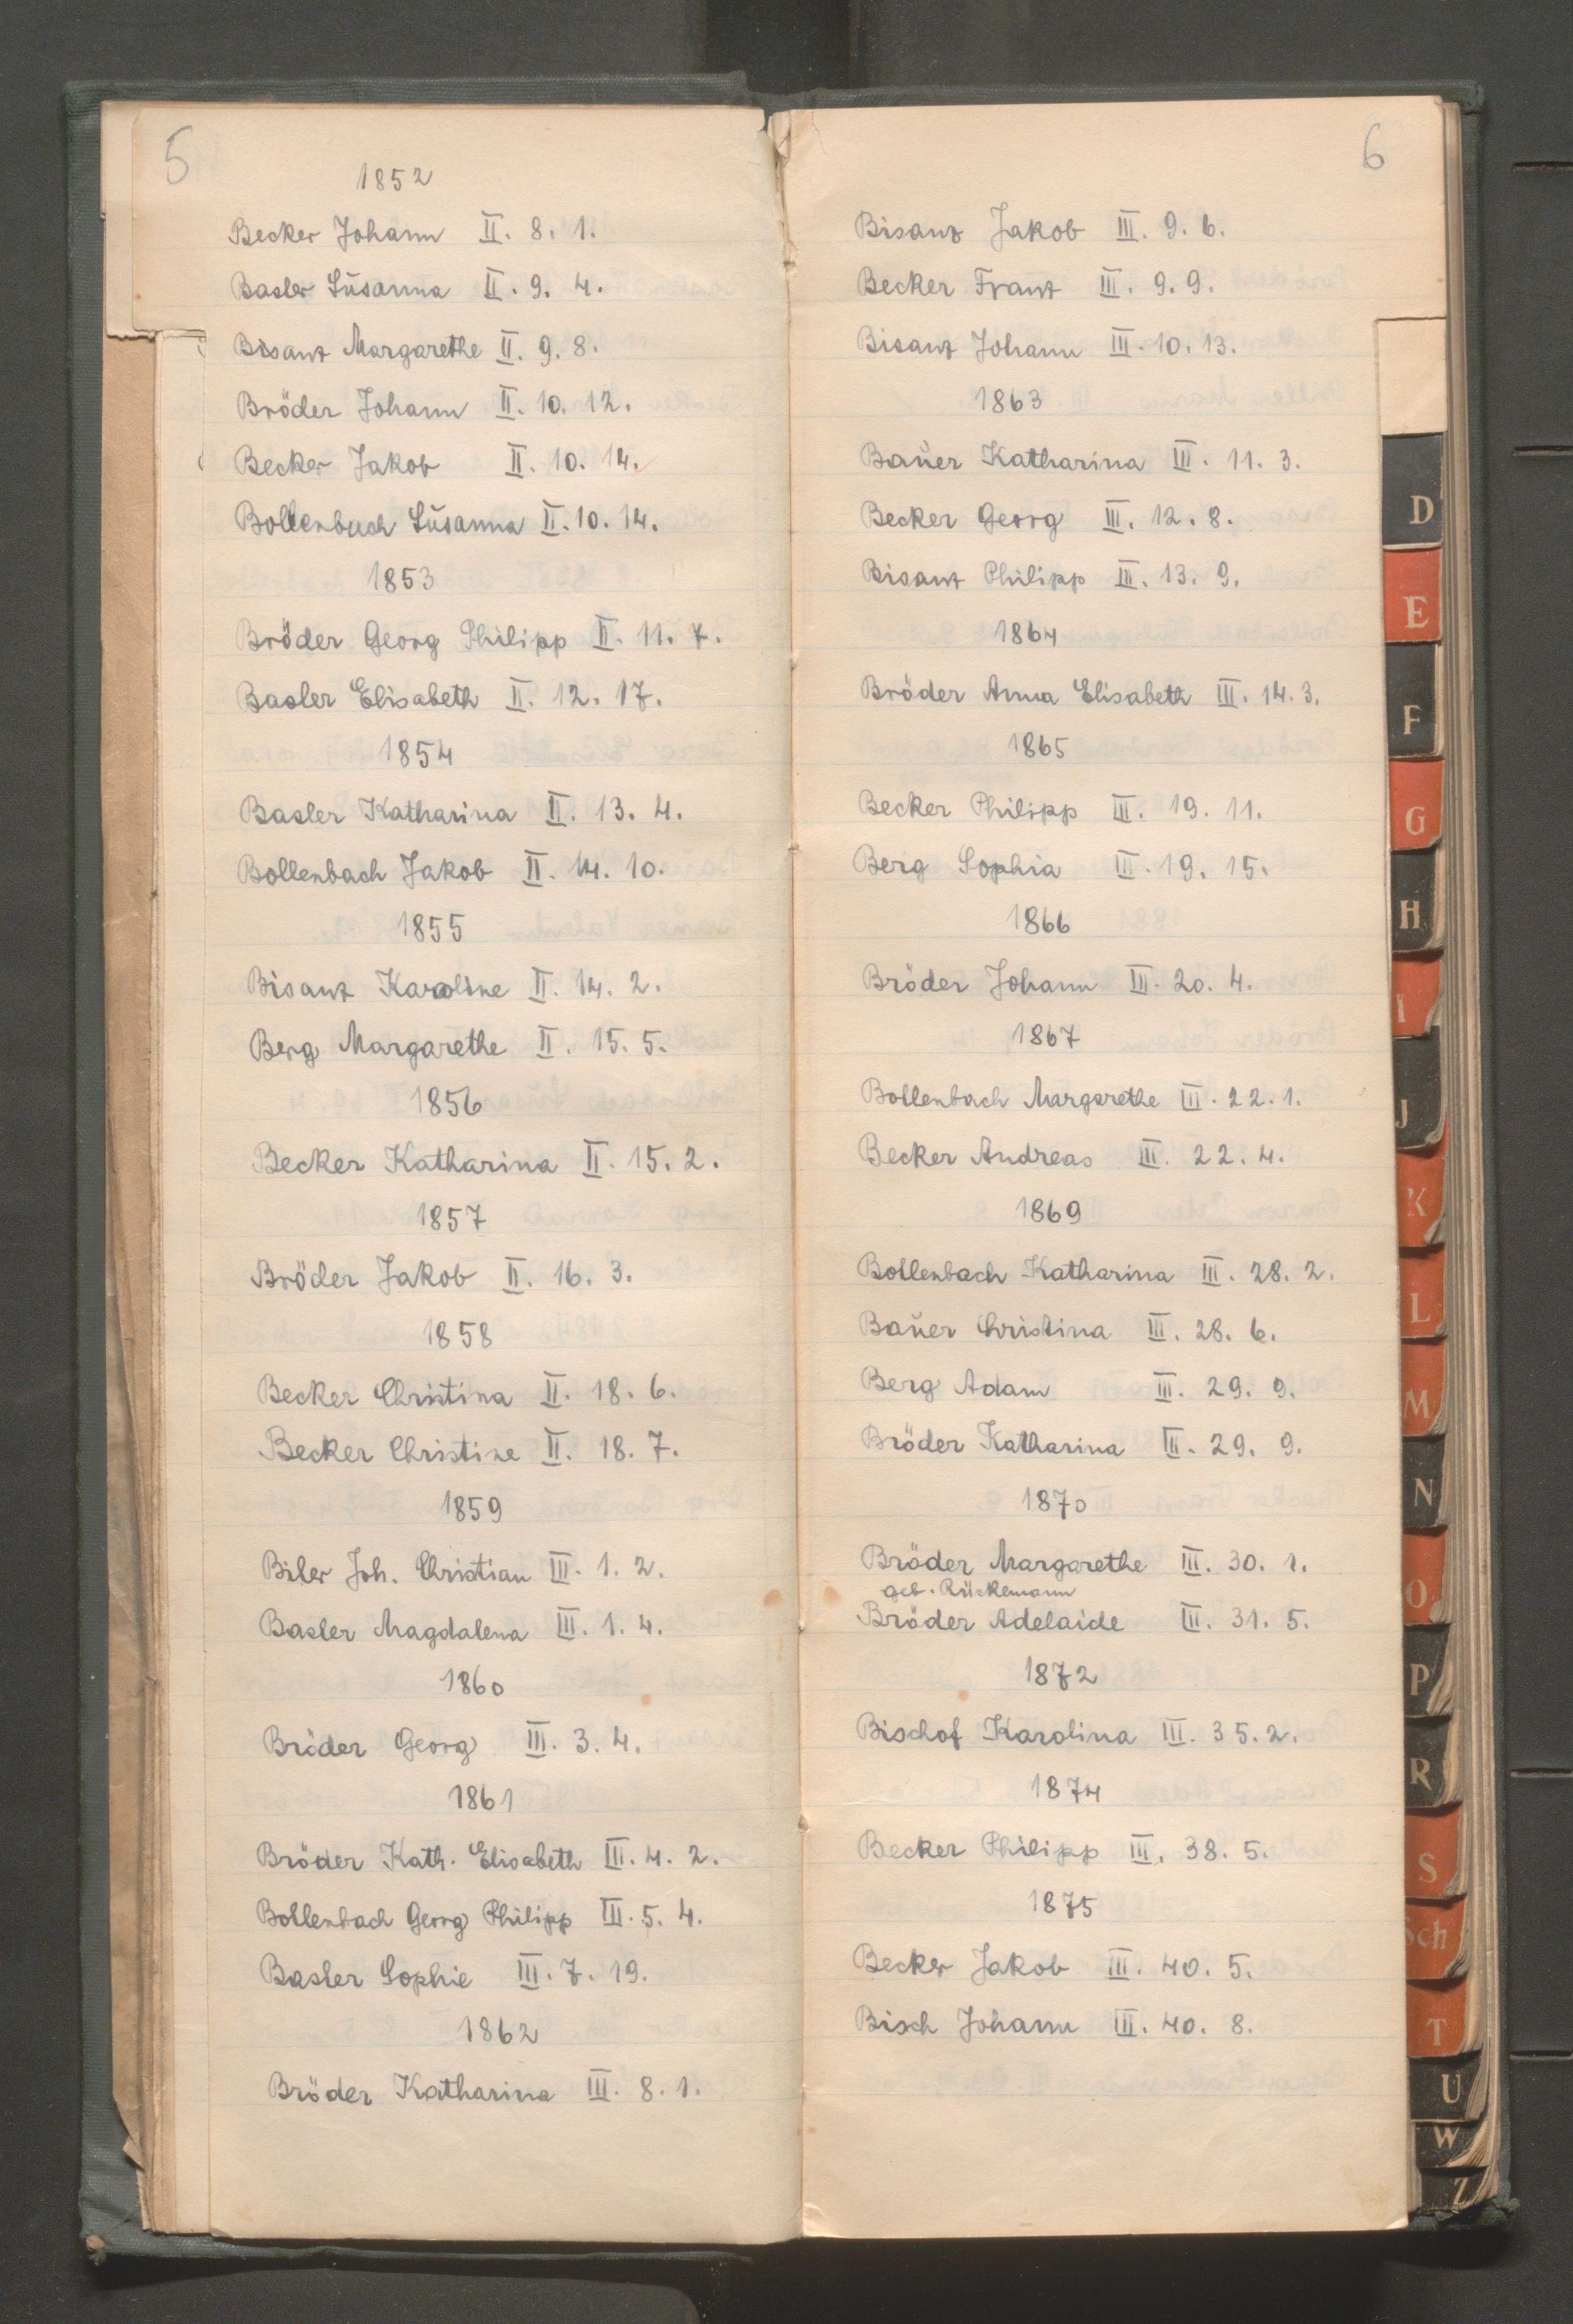 5
1852
Becker Johann II. 8. 1.
Basler Sūsanna II. 9. 4.
Bisanz Margarethe II. 9. 8.
Bröder Johann II. 10. 12.
Becker Jakob II. 10. 14.
Bollenbach Sūsanna II. 10. 14.
1853
Bröder Georg Philipp II. 11. 7.
Basler Elisabeth II. 12. 17.
1854
Basler Katharina II. 13. 4.
Bollenbach Jakob II. 14. 10.
1855
Bisanz Karoline II. 14. 2.
Berg Margarethe II. 15. 5.
1856
Becker Katharina II. 15. 2.
1857
Bröder Jakob II. 16. 3.
1858
Becker Christina II. 18. 6.
Becker Christine II. 18. 7.
1859
Biler Joh. Christian III. 1. 2.
Basler Magdalena III. 1. 4.
1860
Bröder Georg III. 3. 4.
1861
Bröder Kath. Elisabeth III. 4. 2.
Bollenbach Georg Philipp III. 5. 4.
Basler Sophie III. 7. 19.
1862
Bröder Katharina III. 8. 1.
6
Bisanz Jakob III. 9. 6.
Becker Franz III. 9. 9.
Bisanz Johann III. 10. 13.
1863
Baūer Katharina III. 11. 3.
Becker Georg III. 12. 8.
Bisanz Philipp III. 13. 9.
1864
Bröder Anna Elisabeth III. 14. 3.
1865
Becker Philipp III. 19. 11.
Berg Sophia III. 19. 15.
1866
Bröder Johann III. 20. 4.
1867
Bollenbach Margarethe III. 22. 1.
Becker Andreas III. 22. 4.
1869
Bollenbach Katharina III. 28. 2.
Baūer Christina III. 28. 6.
Berg Adam III. 29. 9.
Bröder Katharina III. 29. 9.
1870
Bröder Margarethe III. 30. 1.
geb. Rückemann
Bröder Adelaide III. 31. 5.
1872
Bischof Karolina III. 35. 2.
1874
Becker Philipp III. 38. 5.
1875
Becker Jakob III. 40. 5.
Bisch Johann III. 40. 8.
D
E
F
G
H
I
J
K
L
M
N
O
P
R
S
Sch
T
U
W
Z